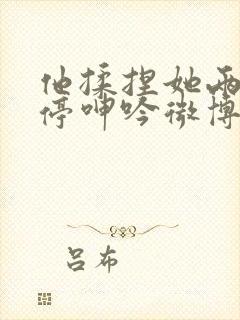 他揉捏她两
停呻吟微博
吕布